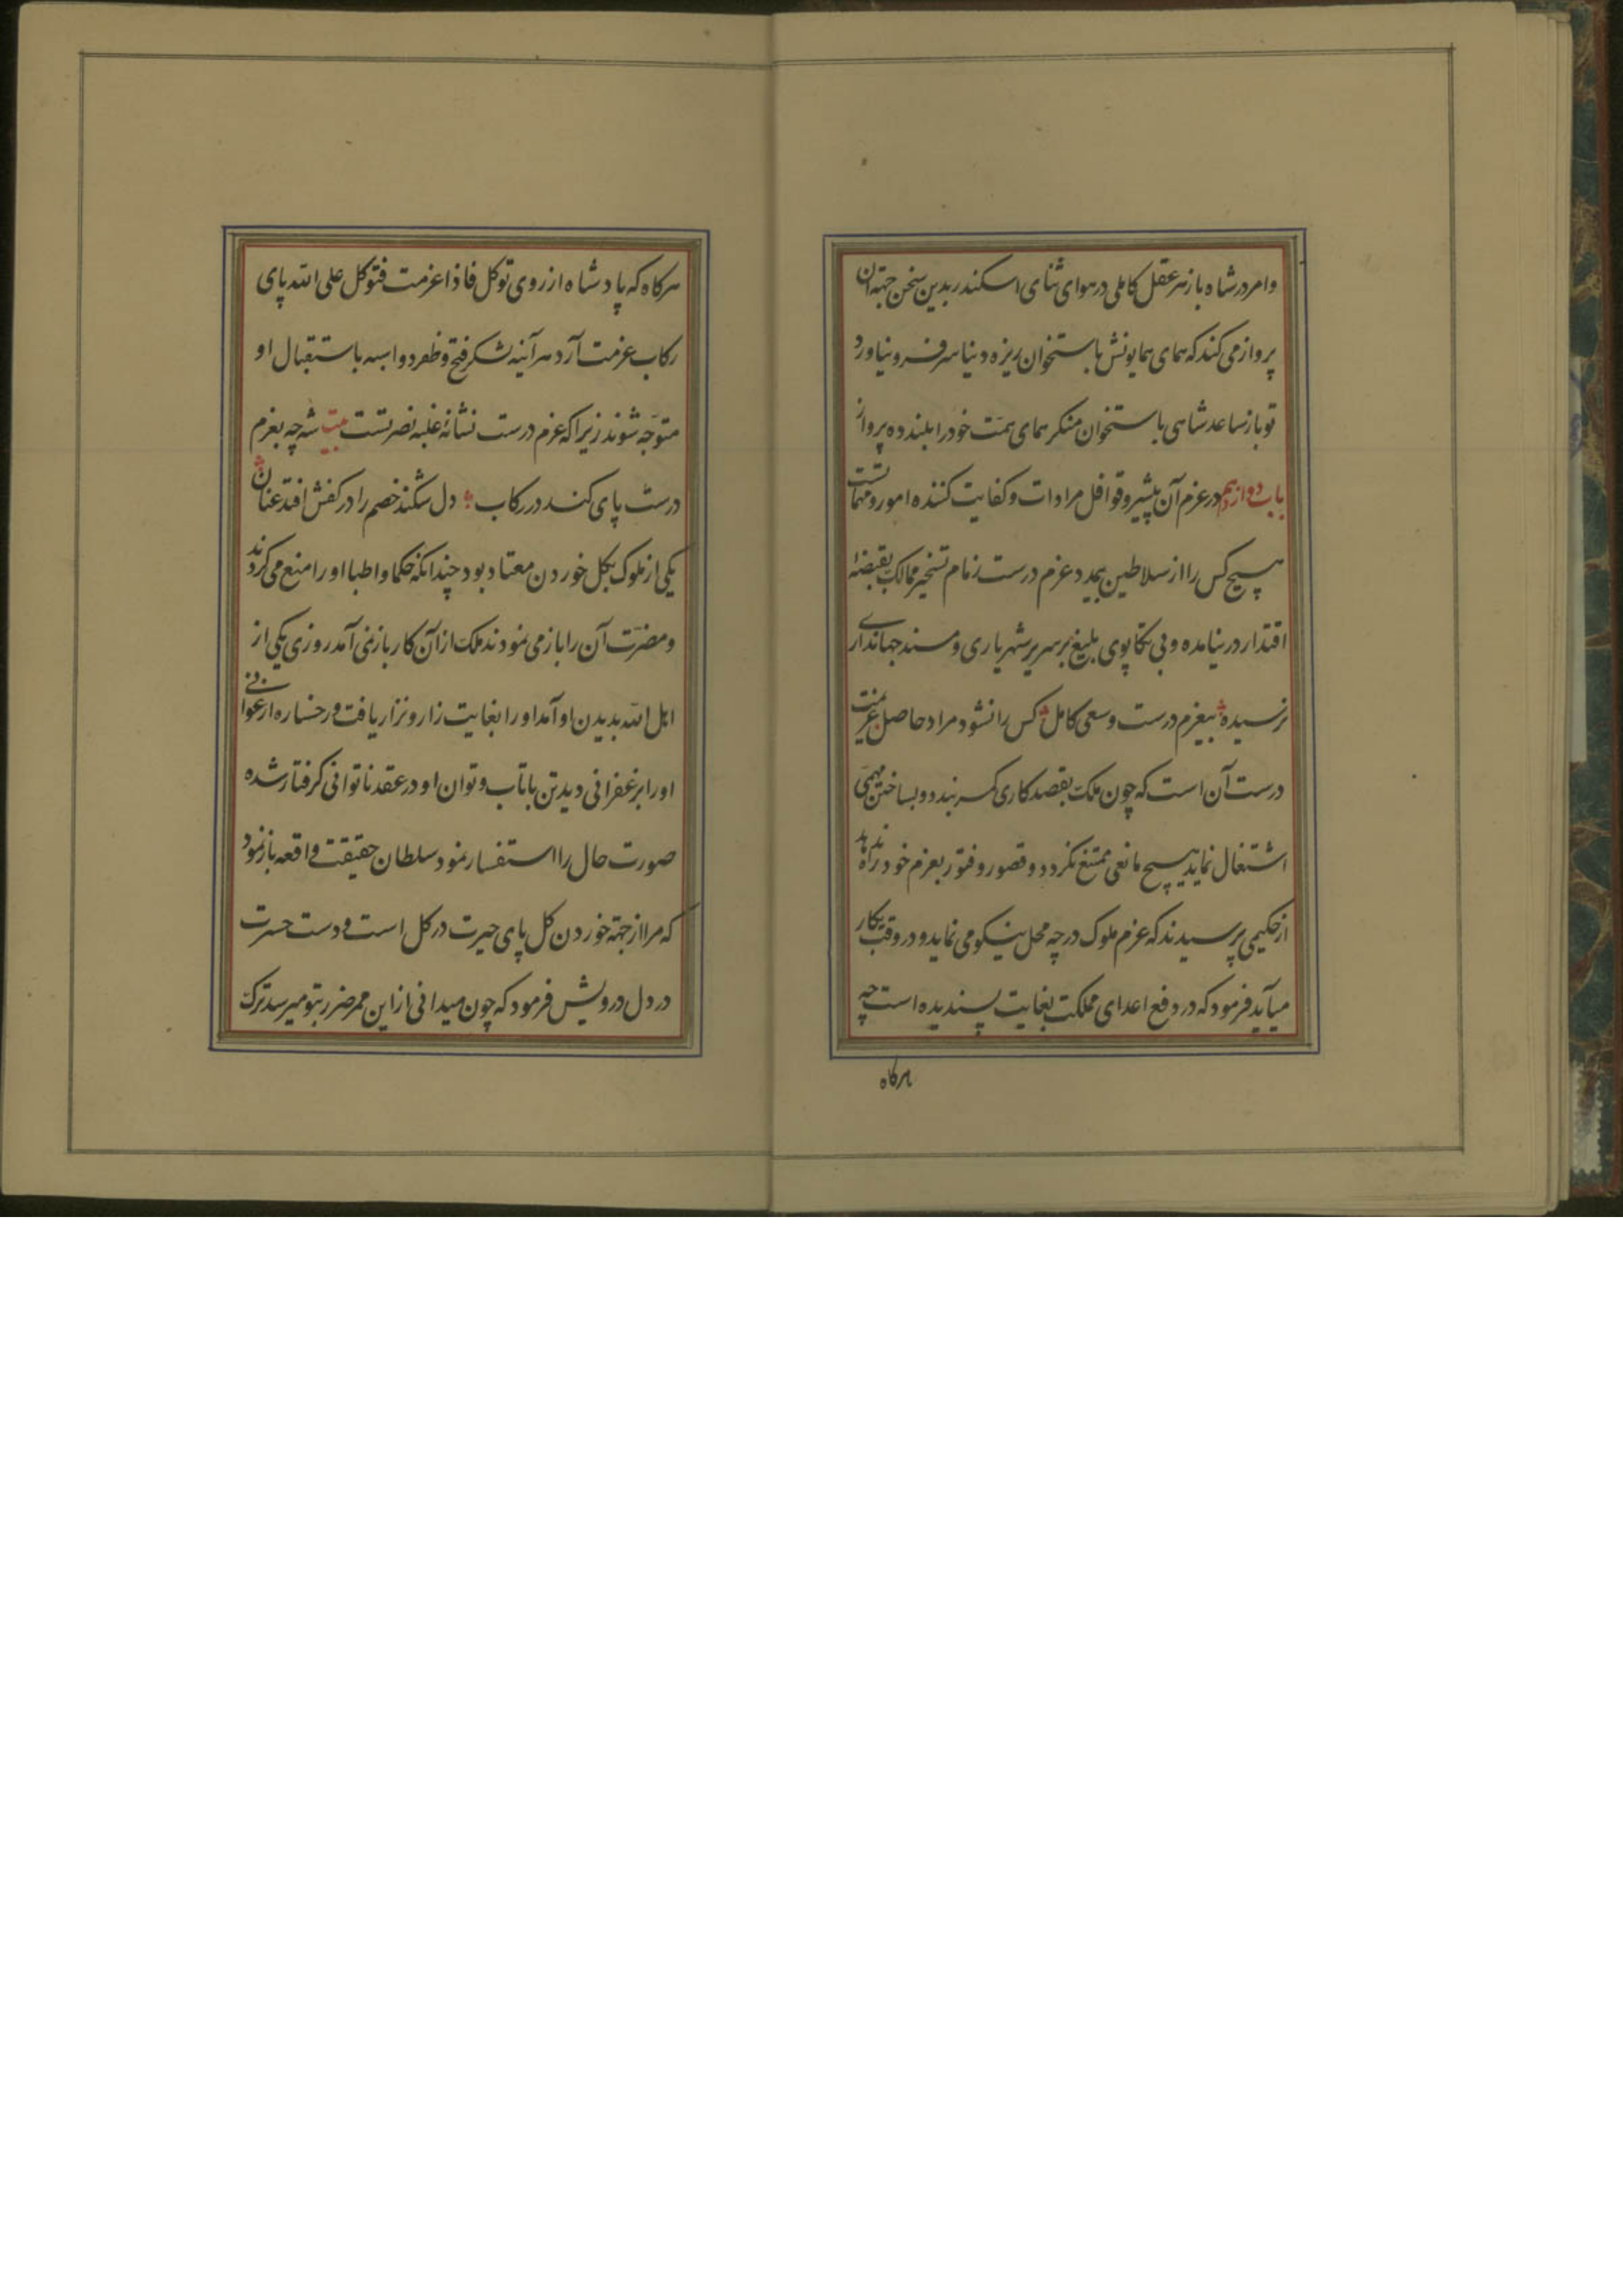 و امروز شاه باز هر عقل کاملی در هوای ثنای اسکندر بدین سخن جهة آن
پرواز می کند که همای همایونش باستخوان ریزه دنیا سر فرو نیاورد
تو باز ساعد شاهی باستخوان منکر همای همت خود را بلند ده پرواز
باب دوازدهم در عزم آن پیشرو قوافل مرادات و کفایت کننده امور و مهماتست
هیچ کس را از سلاطین بیمدد عزم درست زمام تسخیر ممالک بقبضه
اقتدار در نیامده و بی تکاپوی بلیغ بر سریر شهریاری و مسند جهانداری
نرسیده بیعزم درست و سعی کامل کس را نشود مراد حاصل عزیمت
درست آن است که چون ملک بقصد کاری کمر بندد و بساختن مهمی
اشتغال نماید بهیچ مانعی ممتنع نکردد و قصور و فتور بعزم خود راه ندهد
از حکیمی پرسیدند که عزم ملوک در چه محل نیکو می نماید و در وقت بکار
میآید فرمود که در دفع اعدای مملکت بغایت پسندیده است چه
هرکاه
هرکاه که پادشاه از روی توکل فاذا عزمت فتوکل علی الله پای
رکاب عزمت آرد هر آینه لشکر فتح و ظفر دو اسبه باستقبال او
متوجه شوند زیرا که عزم درست نشانه غلبه نصرتست بیت شه چه بعزم
درست پای کند در رکاب دل شکند خصم را در کفش افتد عنان
یکی از ملوک بکل خوردن معتاد بود چندانکه حکما و اطبا او را منع می کردند
و مضرت آن را باز می نمودند ملک از آن کار باز نمی آمد روزی یکی از
اهل الله بدیدن او آمد او را بغایت زار و نزار یافت و رخساره ارغوانی
او را بزعفرانی دید تن باتاب و توان او در عقد ناتوانی کرفتار شده
صورت حال را استفسار نمود سلطان حقیقت واقعه باز نمود
که مرا از جهة خوردن کل پای حیرت در کل است و دست حسرت
در دل درویش فرمود که چون میدانی از این ممر ضرر بتو میرسد ترک